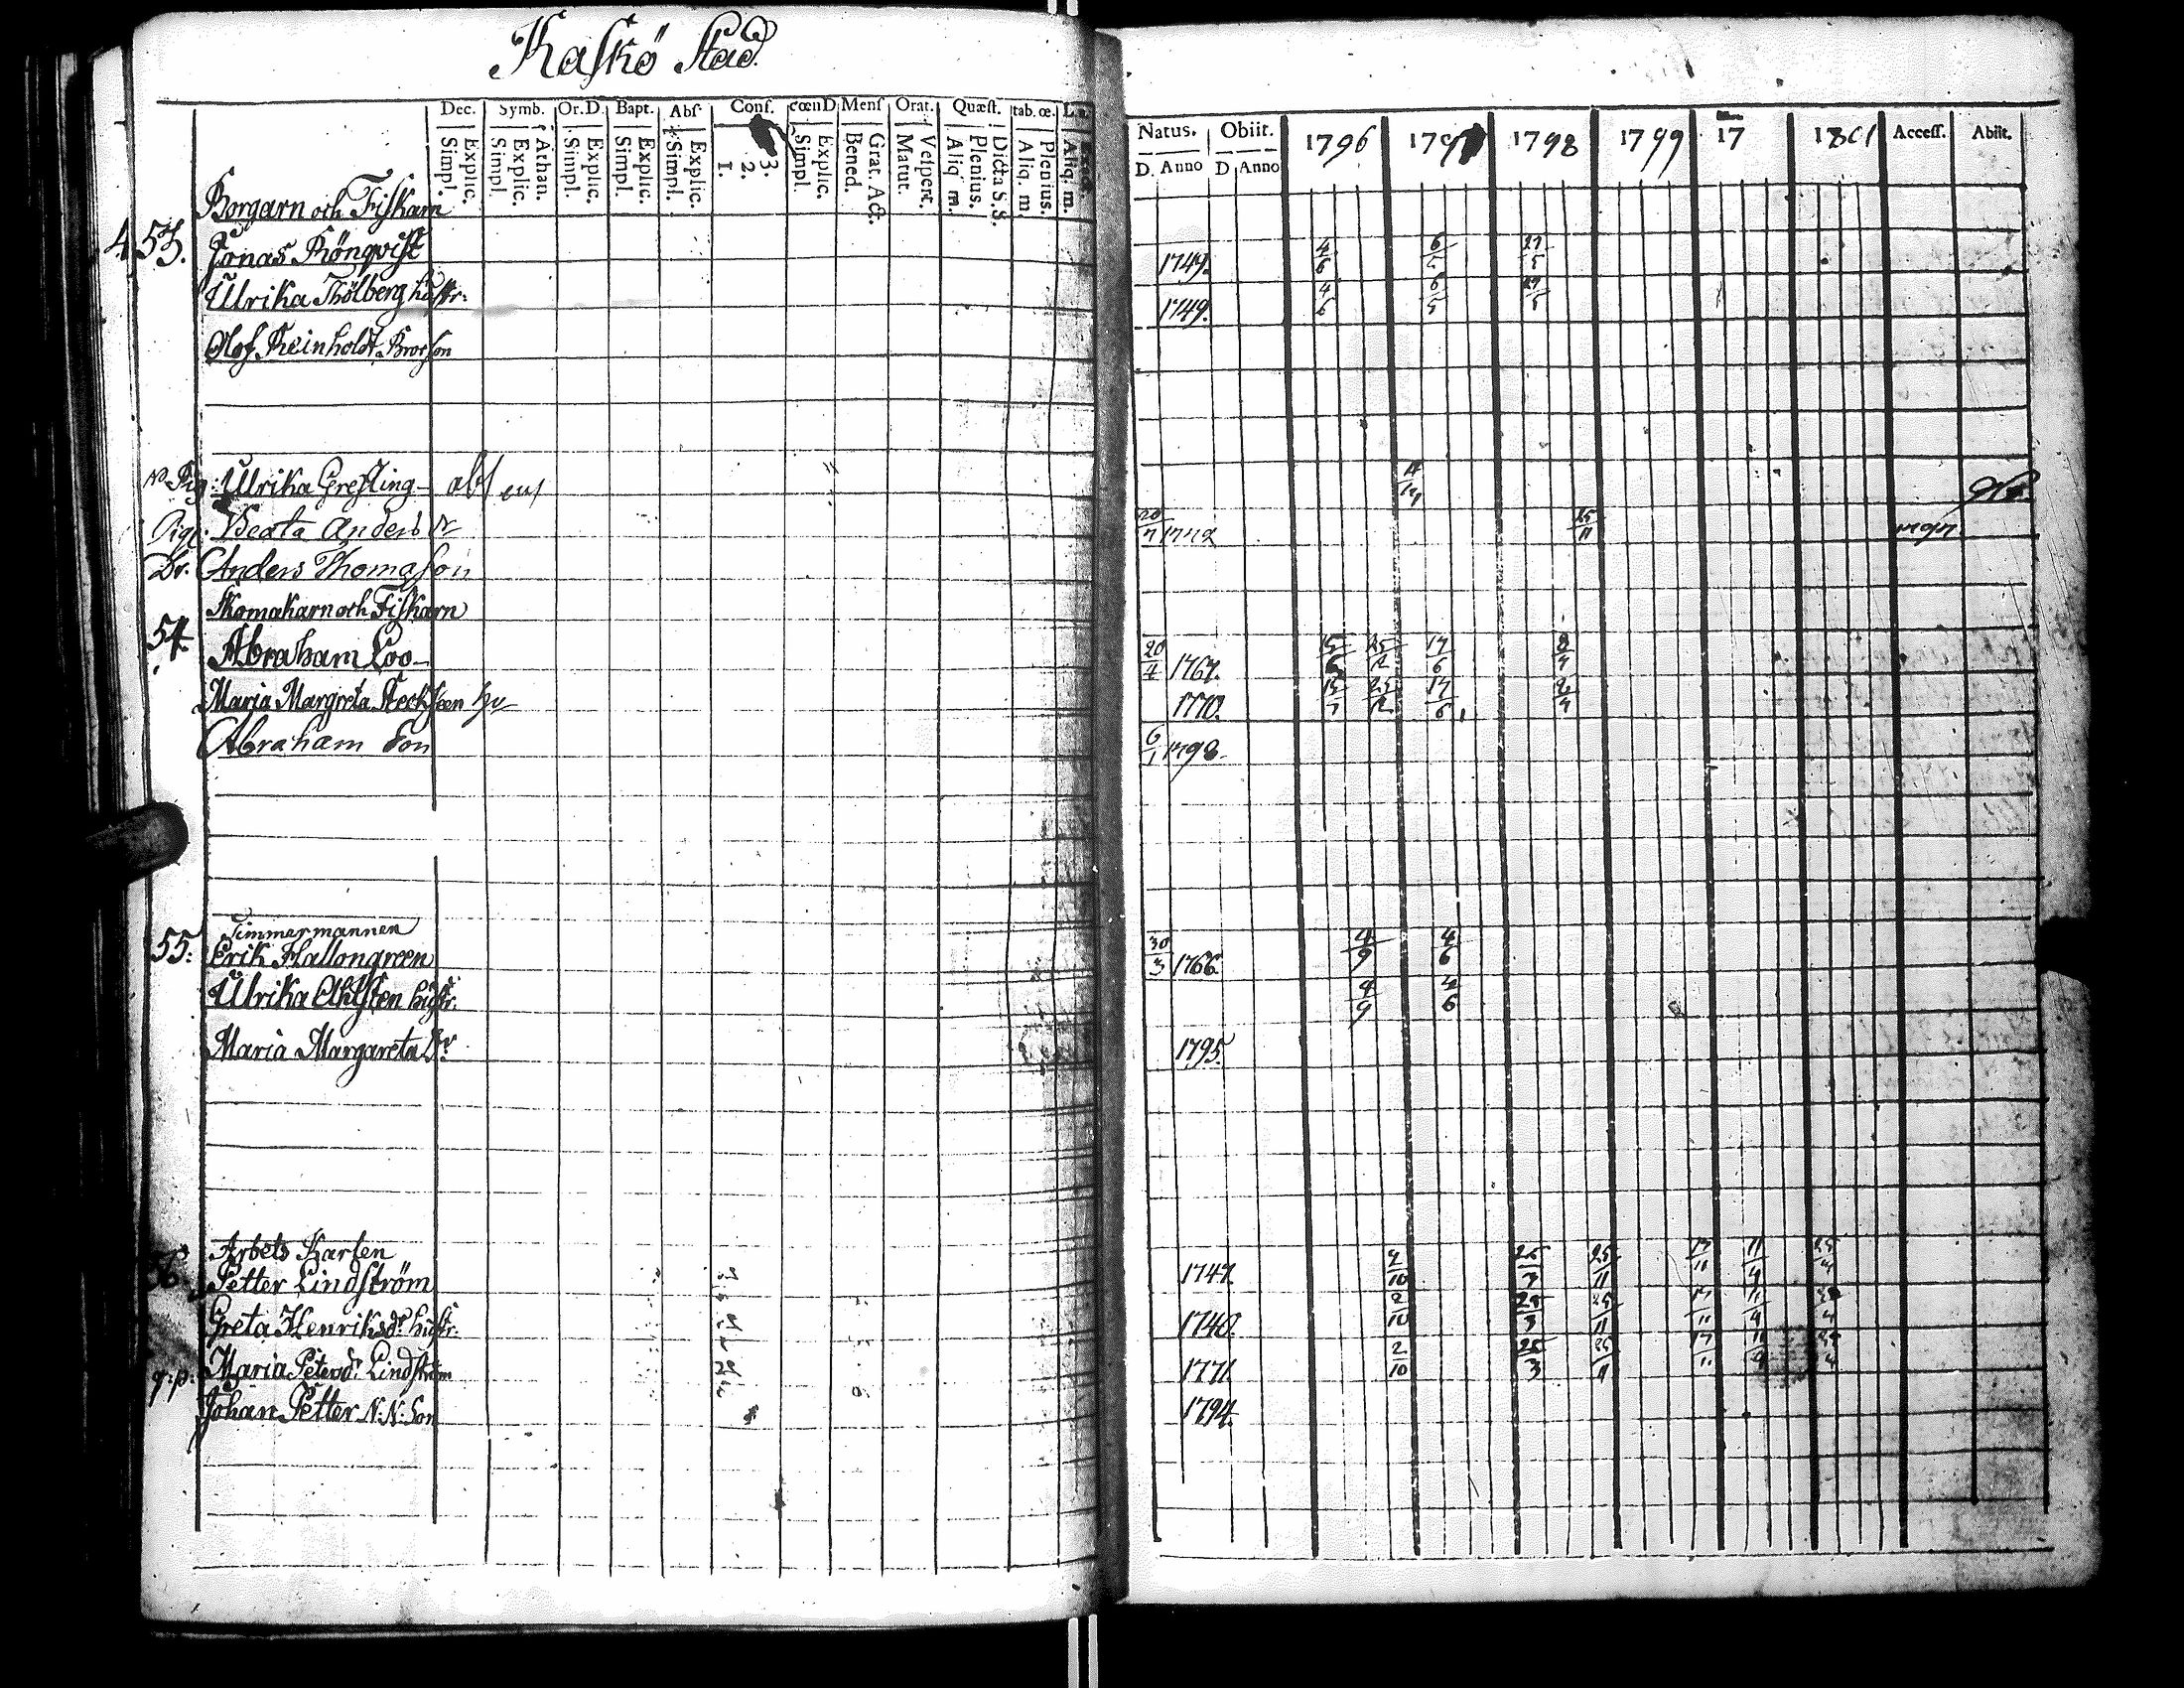 Kaskö Stad
Dec. Symb. Or.D. Bapt. Abs. Conf. cœnD Mens Orat. Quæst. tab.œ.
Explic. Simpl. Athan. Explic. Simpl. Explic. Simpl. Explic. Simpl. Explic. Simpl. 3. 2. 1. Explic. Simpl. Grat. Act. Bened. Vespert. Matut. Dicta S.S. Plenius. Aliq. m. Plenius. Aliq. m. Aliq. m.
Natus. Obiit. 1796 1797 1798 1799 17 1801 Access. Abiit.
D. Anno D Anno
Borgarn och Fiskarn
53. Jonas Rönqvist 1749. 4/6 6/5 27/5
Ulrika Thölberg hustr: 1749. 4/6 6/5 27/5
Olof Reinholdt Brorson
Pig: Ulrika Gresling abs ens
Pig: Beata Anders dr 20/7 1772 25/11 1797
Dr. Anders Thomasson
Skomakarn och Fiskarn
54. Abraham Loo 20/4 1767. 15/6 25/12 17/6 8/4
Maria Margreta Steckseen hu 1770. 25/12 17/6
Abraham Son 6/1 1798
Timmermannen
55: Erik Hallongreen 30/3 1766. 4/9 4/6
Ulrika Ahlsten hustr: 4/9 4/6
Maria Margareta Dr 1795.
Arbets Karlen
56. Petter Lindström 1747. 2/10 25/3 25/11 17/11 11/4 25/4
Greta Henriksdr hustr: 1740. 2/10 25/3 25/11 17/11
Maria Petersdr Lindström 1771. 2/10 25/3 25/11 17/11
Johan Petter N:N: Son 1794.